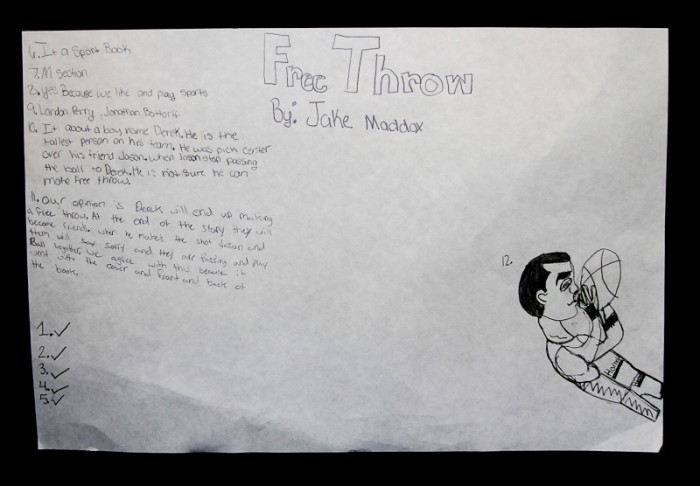 Free Throw
By: Jake Maddox
6. It a Sport Book
7. M section
8. yes Because we like and play sports
9. Landon Perry, Jonathan Bottorff
10. It about a boy name Derek. He is the
tallest person on his team. He was pick center
over his friend Jason. when Jason stop passing
the ball to Derek. He is not sure he can
make free throw.
11. Our opinion is Derek will end up making
a free throw. At the end of the story they will
become friends. when he makes the shot Jason and
them will say sorry and they are passing and play
Ball together. we agree with this because it
went with the cover and front and back of
the book.
12.
1. ✓
2. ✓
3. ✓
4. ✓
5. ✓